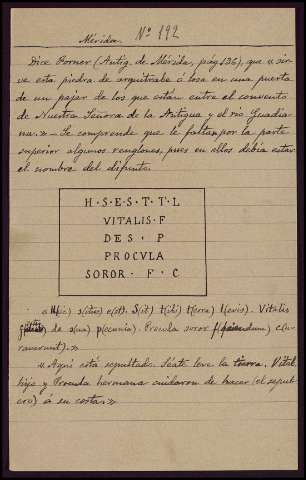 Mérida. Nº 192
Dice Forner (Antig. de Mérida, pág 136), que «sir-
ve esta piedra de arquitrabe ó losa en una puerta
de un pajar de los que están entre el convento
de Nuestra Señora de la Antigua y el rio Guadia-
na.» – Se comprende que le faltan por la parte
superior algunos renglones, pues en ellos debia estar
el nombre del difunto.
H · S · E · S · T · T · L
VITALIS · F
DES · P
PROCVLA
SOROR · F · C
«H(ic) s(itus) e(st). S(it) t(ibi) t(erra) l(evis). Vitalis
de s(ua) p(ecunia). Procula soror f(aciendum) c(u-
raverunt).»
«Aqui está sepultado. Séate leve la tierra. Vital
hijo y Procula hermana cuidaron de hacer (el sepul-
cro) á su costa.»